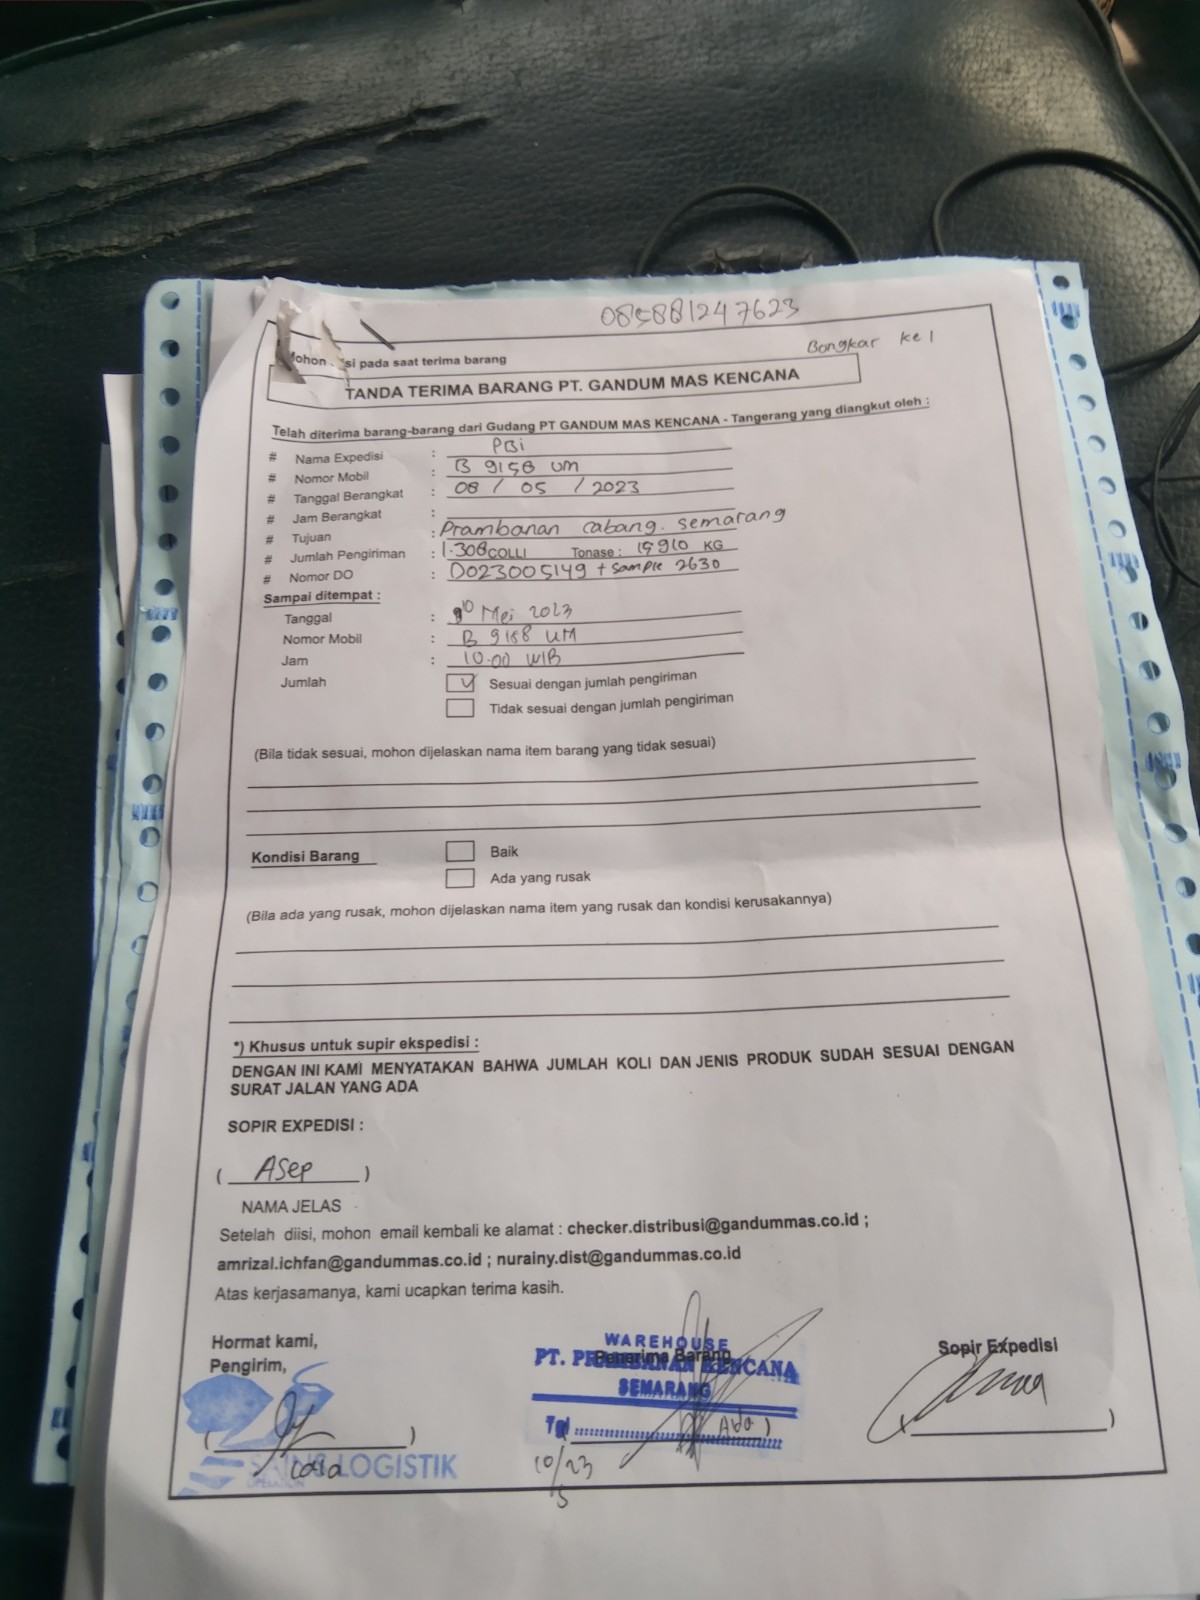 085881247623
Bongkar ke 1
Mohon si pada saat terima barang
TANDA TERIMA BARANG PT. GANDUM MAS KENCANA
Telah diterima barang-barang dari Gudang PT GANDUM MAS KENCANA - Tangerang yang diangkut oleh :
# Nama Expedisi : PBi
# Nomor Mobil : B 9158 UM
# Tanggal Berangkat : 08 / 05 / 2023
# Jam Berangkat :
# Tujuan : Prambanan cabang. semarang
# Jumlah Pengiriman : 1.308 COLLI Tonase : 15910 KG
# Nomor DO : D023005149 + sample 2630
Sampai ditempat :
Tanggal : 10 Mei 2023
Nomor Mobil : B 9158 UM
Jam : 10.00 WIB
Jumlah V Sesuai dengan jumlah pengiriman
Tidak sesuai dengan jumlah pengiriman
(Bila tidak sesuai, mohon dijelaskan nama item barang yang tidak sesuai)
Kondisi Barang Baik
Ada yang rusak
(Bila ada yang rusak, mohon dijelaskan nama item yang rusak dan kondisi kerusakannya)
*) Khusus untuk supir ekspedisi :
DENGAN INI KAMI MENYATAKAN BAHWA JUMLAH KOLI DAN JENIS PRODUK SUDAH SESUAI DENGAN
SURAT JALAN YANG ADA
SOPIR EXPEDISI :
( Asep )
NAMA JELAS
Setelah diisi, mohon email kembali ke alamat : checker.distribusi@gandummas.co.id ;
amrizal.ichfan@gandummas.co.id ; nurainy.dist@gandummas.co.id
Atas kerjasamanya, kami ucapkan terima kasih.
Hormat kami,
Pengirim,
WAREHOUSE
Penerima Barang
PT. PRAMBANAN KENCANA
SEMARANG
Sopir Expedisi
Tgl
( Ado )
LOGISTIK
10/5 23